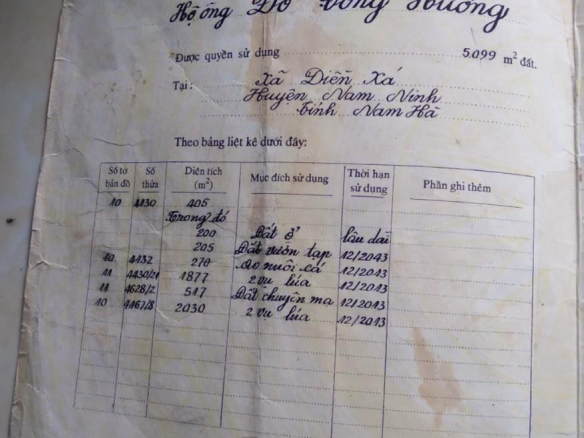 Hộ ông Đỗ Vông Hường
Được quyền sử dụng 5.099 m² đất.
Tại: Xã Diễn Xá
Huyện Nam Ninh
tỉnh Nam Hà
Theo bảng liệt kê dưới đây:
Số tờ bản đồ Số thửa Diện tích (m²) Mục đích sử dụng Thời hạn sử dụng Phần ghi thêm
10 4130 405
Trong đó
200 Đất ở lâu dài
205 Đất vườn tạp 12/2043
10 4132 270 ao nuôi cá 12/2013
11 4430/21 1877 2 vụ lúa 12/2013
11 4628/2 517 Đất chuyên mạ 12/2013
10 4467/8 2030 2 vụ lúa 12/2013